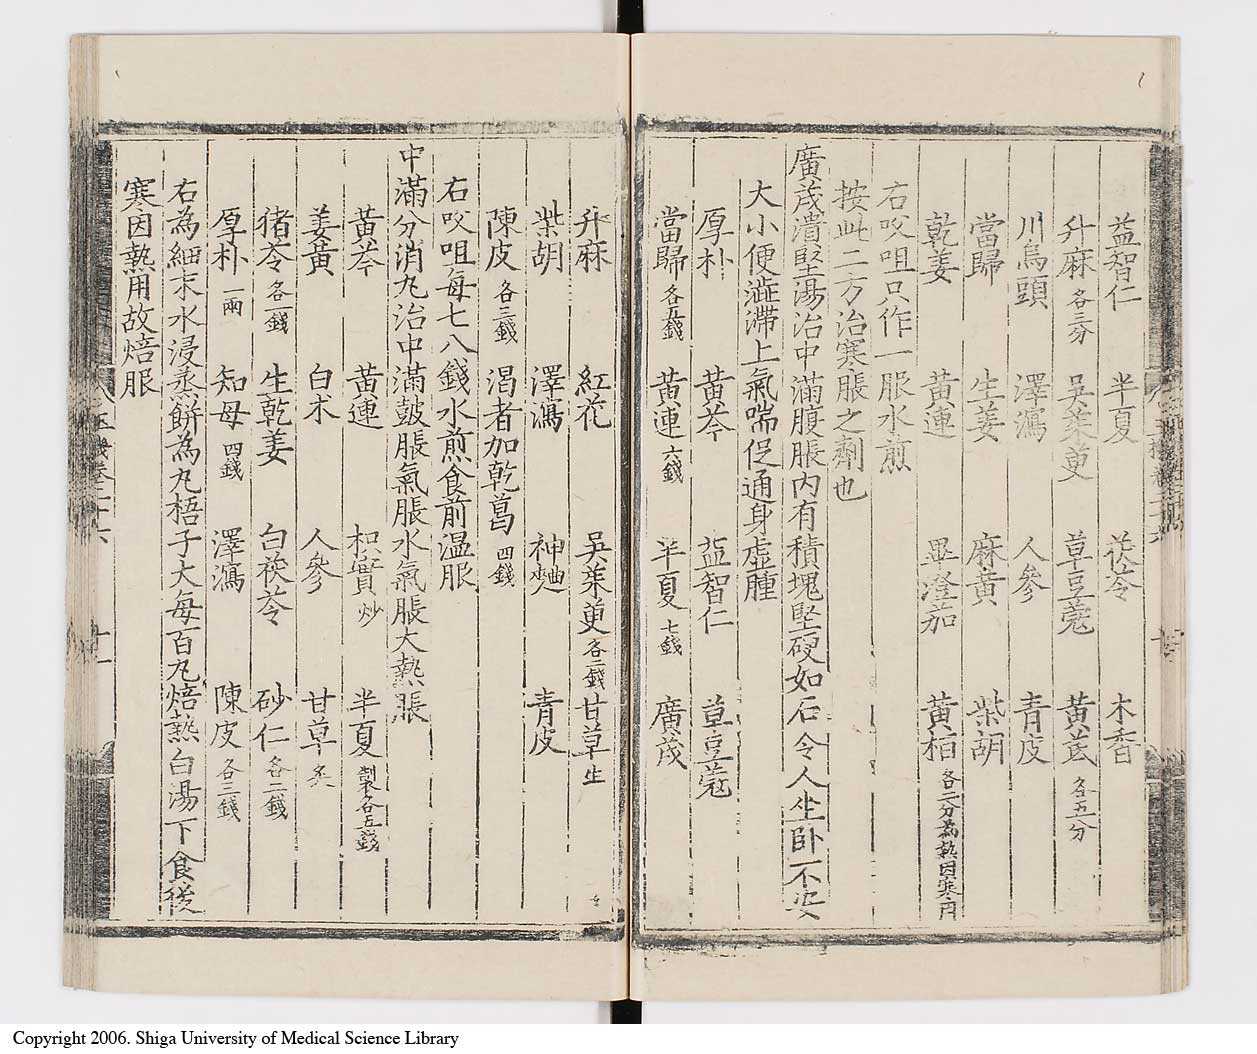 益智仁 半夏 茯苓 木香
升麻 各三分 吳茱萸 草豆蔻 黃芪 各五分
川烏頭 澤瀉 人參 青皮
當歸 生姜 麻黃 柴胡
乾姜 黃連 畢澄茄 黃栢 各二分為熱因寒用
右㕮咀只作一服水煎
按此二方治寒脹之劑也
廣茂潰堅湯治中滿腹脹內有積塊堅硬如石令人坐臥不安
大小便澁滯上氣喘促通身虛腫
厚朴 黃芩 益智仁 草豆蔻
當歸 各五錢 黃連 六錢 半夏 七錢 廣茂
升麻 紅花 吳茱萸 各二錢 甘草 生
柴胡 澤瀉 神麯 青皮
陳皮 各三錢 渴者加乾葛 四錢
右㕮咀每七八錢水煎食前温服
中滿分消丸治中滿鼓脹氣脹水氣脹大熱脹
黃芩 黃連 枳實 炒 半夏 製各五錢
姜黃 白朮 人參 甘草 炙
猪苓 各一錢 生乾姜 白茯苓 砂仁 各二錢
厚朴 一兩 知母 四錢 澤瀉 陳皮 各三錢
右為細末水浸蒸餅為丸梧子大每百丸焙熱白湯下食後
寒因熱用故焙服
玉機卷二十六
十一
Copyright 2006. Shiga University of Medical Science Library